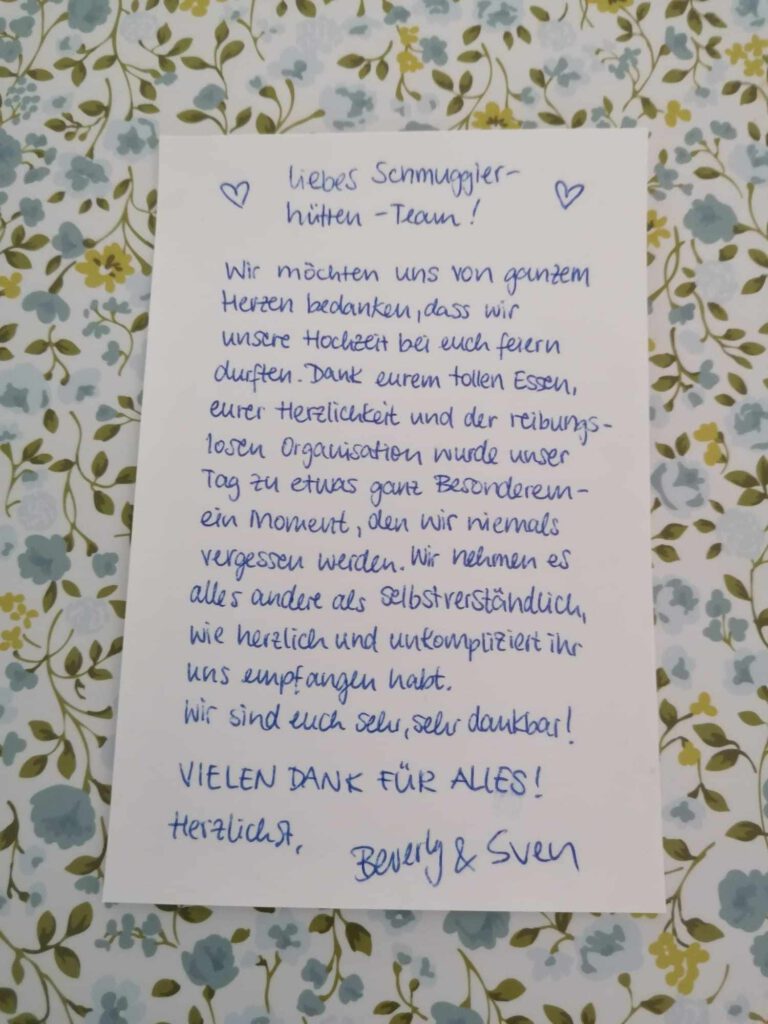 liebes Schmuggler-
hütten-Team!
Wir möchten uns von ganzem
Herzen bedanken, dass wir
unsere Hochzeit bei euch feiern
durften. Dank eurem tollen Essen,
eurer Herzlichkeit und der reibungs-
losen Organisation wurde unser
Tag zu etwas ganz Besonderem-
ein Moment, den wir niemals
vergessen werden. Wir nehmen es
alles andere als selbstverständlich,
wie herzlich und unkompliziert ihr
uns empfangen habt.
Wir sind euch sehr, sehr dankbar!
VIELEN DANK FÜR ALLES!
Herzlichst,
Beverly & Sven